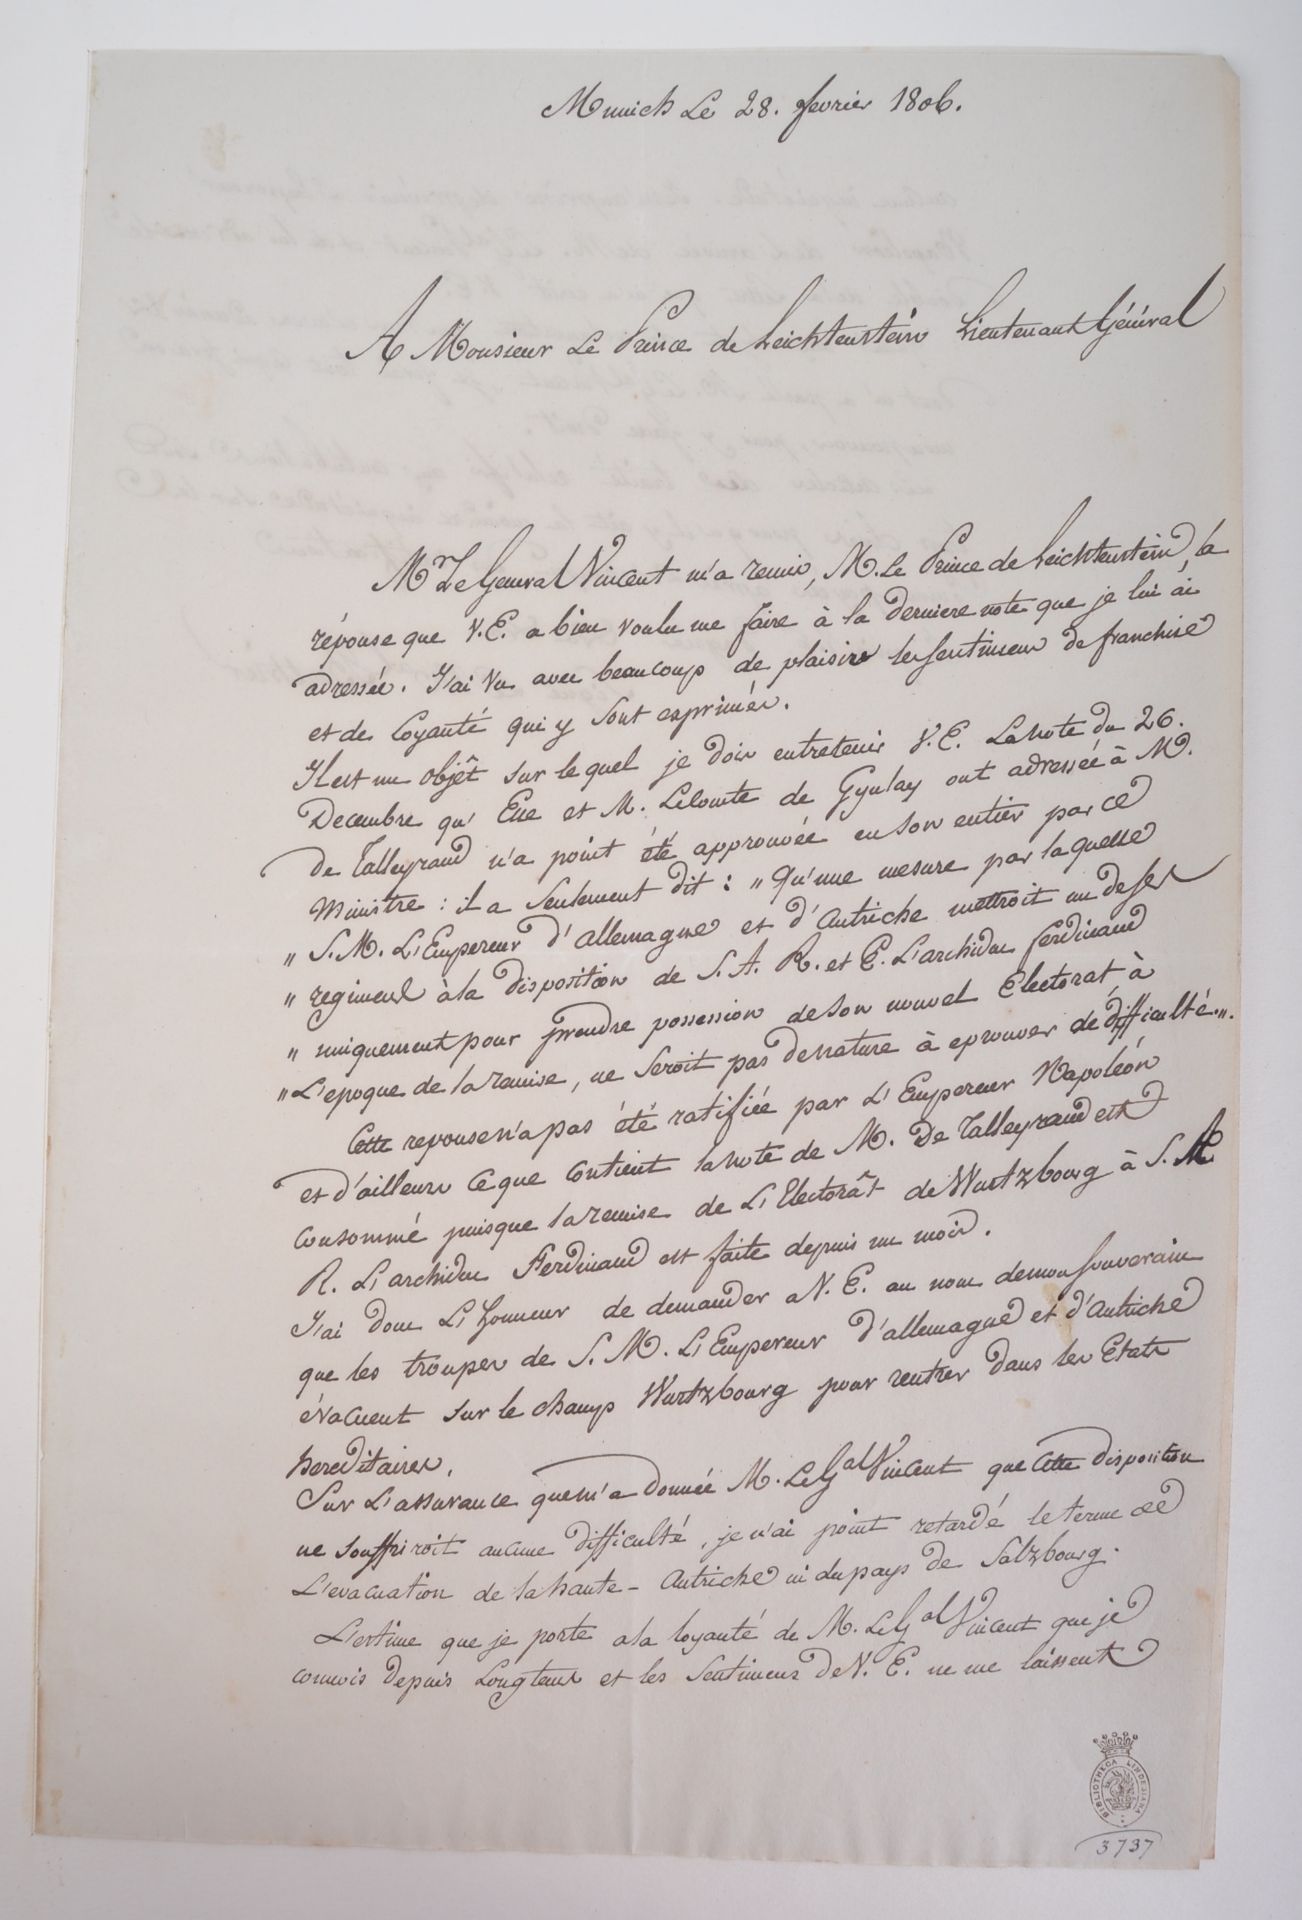 Munich Le 28. fevrier 1806.
A Monsieur Le Prince de Leichtenstein Lieutenant Général
Mr Le General Vincent m'a remis, M. Le Prince de Leichtenstein, la
réponse que V.E. a bien voulu me faire à la derniere note que je lui ai
adressée. J'ai vu avec beaucoup de plaisir les sentimens de franchise
et de Loyauté qui y sont exprimés.
Il est un objêt sur lequel je dois entretenir V.E. La note du 26.
Decembre qu'Elle et M. Le Comte de Gyulay ont adressée à M.
de Talleyrand n'a point été approuvée en son entier par ce
Ministre : il a seulement dit : „ Qu'une mesure par laquelle
„ S.M. L'Empereur d'allemagne et d'autriche mettroit un de ses
„ regimens à la disposition de S.A.R. et E. L'archiduc ferdinand
„ uniquement pour prendre possession de son nouvel Electorat à
„ L'epoque de la remise, ne seroit pas de nature à eprouver de difficulté„.
Cette reponse n'a pas été ratifiée par L'Empereur Napoléon
et d'ailleurs ce que contient la note de M. De Talleyrand est
consommé puisque la remise de L'Electorât de Wurtzbourg à S.A.
R. L'archiduc Ferdinand est faite depuis un mois.
J'ai donc L'honneur de demander a V.E. au nom de mon souverain
que les troupes de S.M. L'Empereur d'allemagne et d'autriche
évacuent sur le champs Wurtzbourg pour rentrer dans les Etats
hereditaires.
Sur L'assurance que m'a donnée M. Le Gal Vincent que cette disposition
ne souffriroit aucune difficulté, je n'ai point retardé le terme de
L'evacuation de la haute-autriche ni du pays de Salzbourg.
L'estime que je porte a la loyauté de M. Le Gal Vincent que je
connois depuis Longtems et les sentimens de V.E. ne me laissent
BIBLIOTHECA LINDESIANA
3737